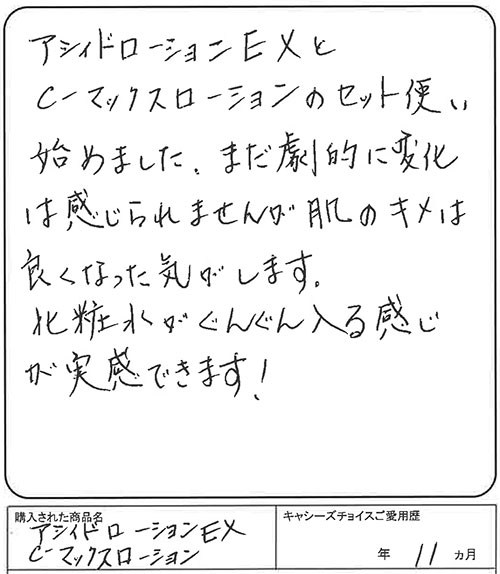 アシィドローションEXと
C-マックスローションのセット使い
始めました。まだ劇的に変化
は感じられませんが肌のキメは
良くなった気がします。
化粧水がぐんぐん入る感じ
が実感できます!
購入された商品名
アシィドローションEX
C-マックスローション
キャシーズチョイスご愛用歴
年 11 ヵ月